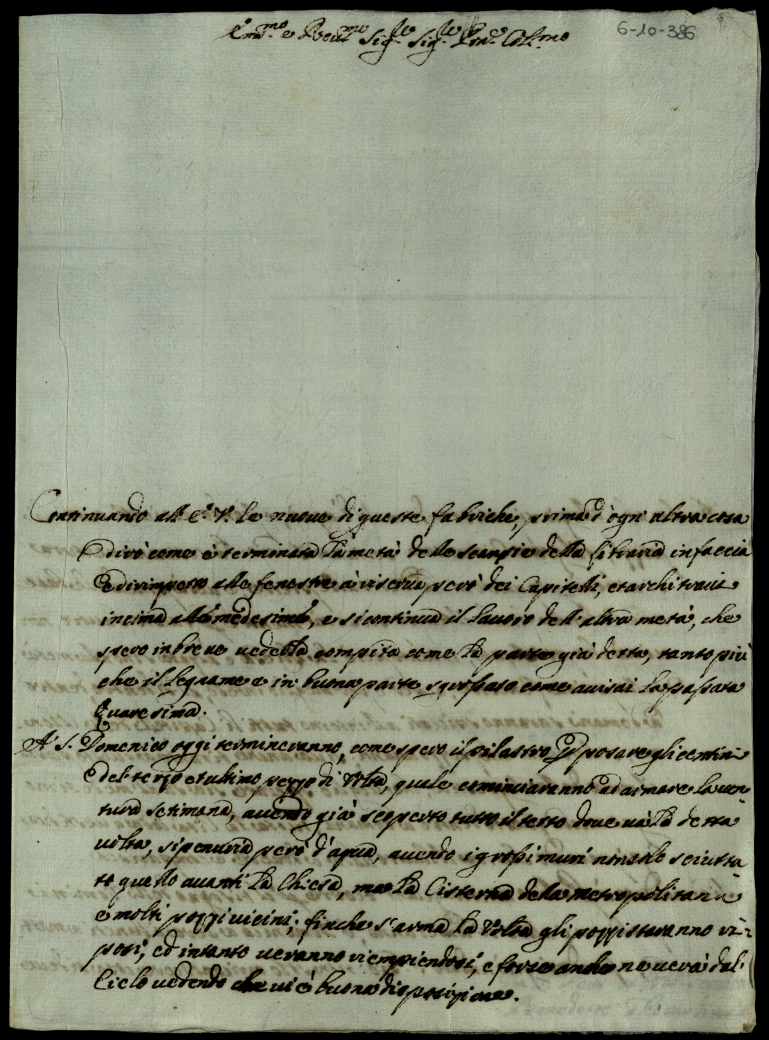 Em.mo e Rev.mo Sig.re Sig.re Pron. Col.mo
6-10-386
Continuando all'E. V. le nuove di queste fabriche, prima d'ogn'altra cosa
dirò come è terminata la metà delle scansie della libraria in faccia
e dirimpetto alle fenestre à riserva però dei Capitelli, et architravi
incima alle medesime, e si continua il lauoro dell'altra metà, che
spero in breve vederla compita come la parte già detta, tanto più
che il legname è in buona parte sgrossato come avisai la passata
Quaresima.
A S. Domenico oggi termineranno, come spero il pilastro per posare gli centini
del terzo et ultimo pezzo di volta, quale cominciaranno ad armare la ven-
tura setimana, avendo già scoperto tutto il tetto dove và la detta
volta, si penuria però d'aqua, avendo i grossi muri non solo sciutta
to quello avanti la Chiesa, ma la Cisterna della metropolitana
e molti pozzi vicini, finche s'arma la volta gli pozzi staranno ri-
posi, ed intanto veranno riempiendosi, e forse anche ne verà dal
Cielo vedendo che vi è buona disposizione.